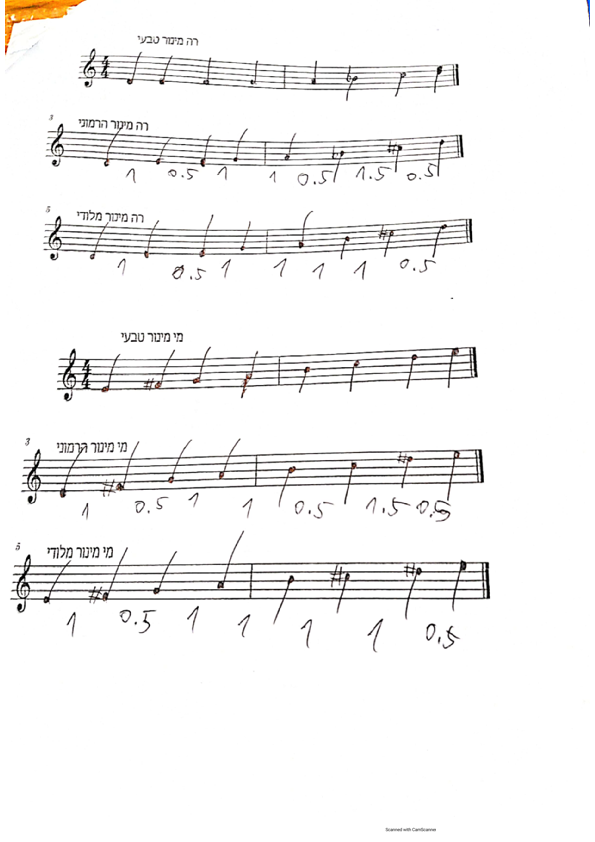 רה מינור טבעי
4
4
3
רה מינור הרמוני
1 0.5 1 1 0.5 1.5 0.5
5
רה מינור מלודי
1 0.5 1 1 1 1 0.5
מי מינור טבעי
4
4
3
מי מינור הרמוני
1 0.5 1 1 0.5 1.5 0.5
5
מי מינור מלודי
1 0.5 1 1 1 1 0.5
Scanned with CamScanner